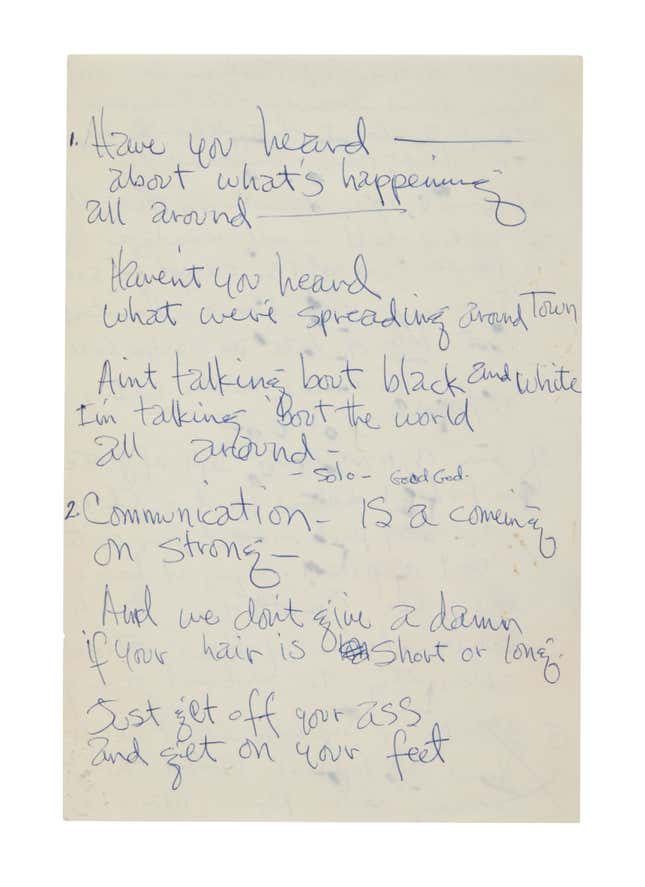 1. Have you heard —
about what's happening
all around —
Haven't you heard
what we're spreading around Town
Aint talking bout black and white
I'm talking 'Bout the world
all around -
- Solo - Good God.
2. Communication - IS a comeing
on strong -
And we don't give a damn
if your hair is short or long.
Just get off your ass
and get on your feet